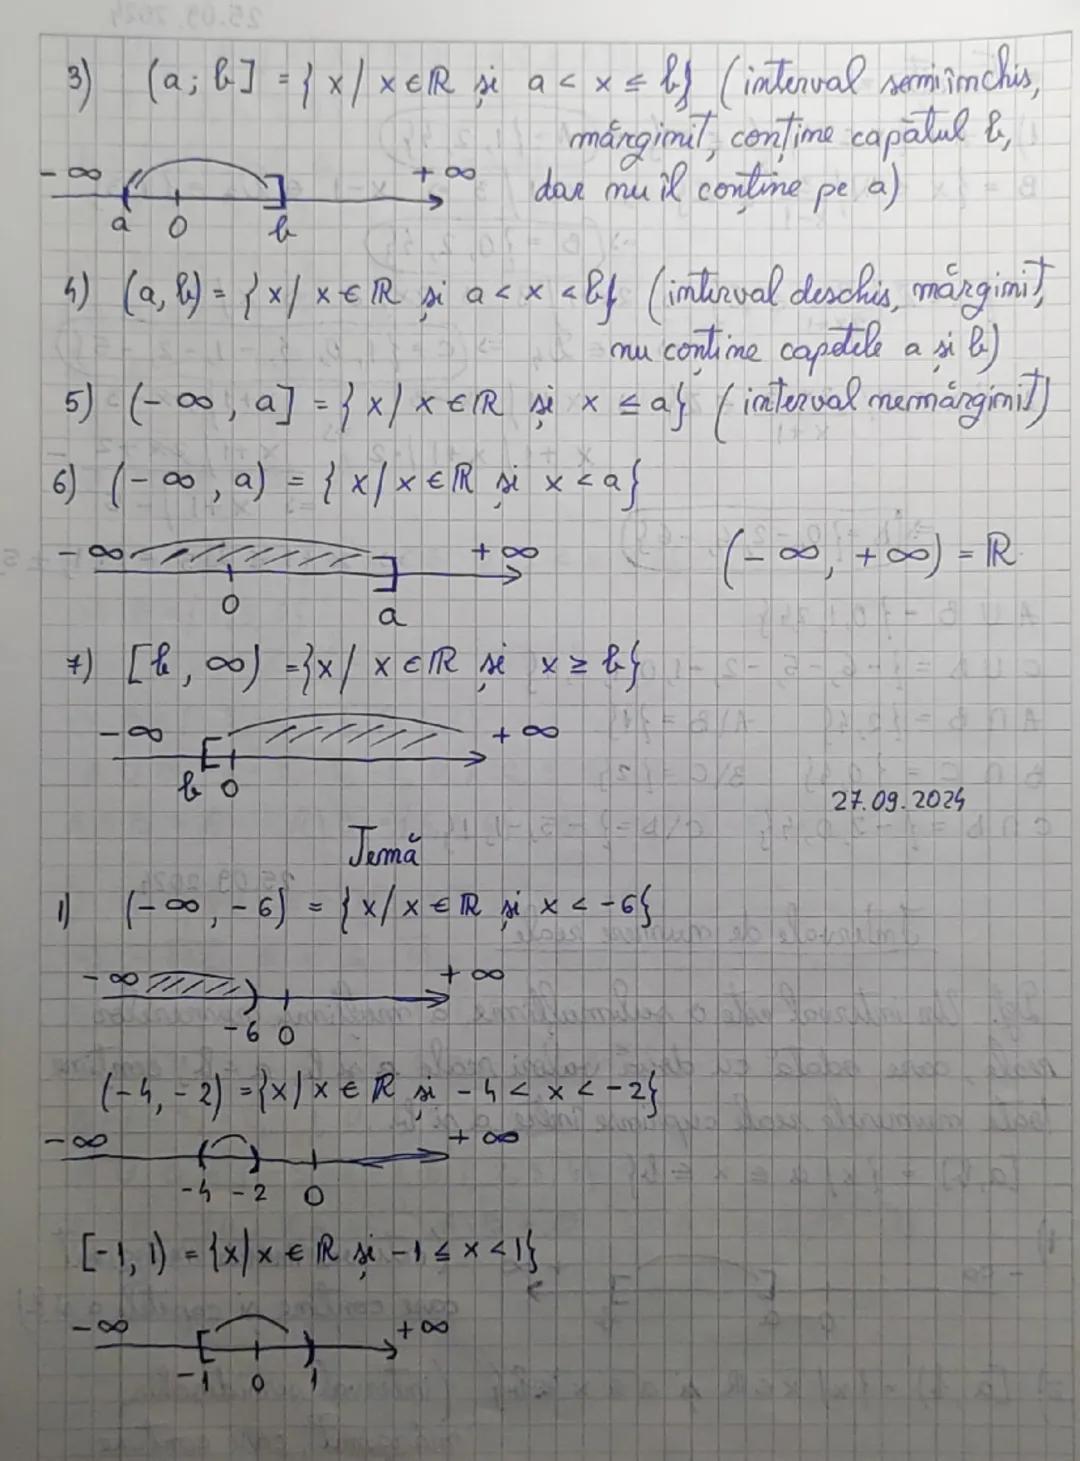 3) (a; b] = {x/ x∈ℝ și a < x ≤ b} (interval semiînchis,
mărginit, conține capătul b,
dar nu îl conține pe a)
-∞ +∞
a 0 b
4) (a, b) = {x/ x∈ℝ și a < x < b} (interval deschis, mărginit,
nu conține capetele a și b)
5) (-∞, a] = {x/ x∈ℝ și x ≤ a} (interval nemărginit)
6) (-∞, a) = {x/ x∈ℝ și x < a}
-∞ +∞ (-∞, +∞) = ℝ
0 a
7) [b, ∞) = {x/ x∈ℝ și x ≥ b}
-∞ +∞
b 0
27.09.2024
Temă
1) (-∞, -6) = {x/ x∈ℝ și x < -6}
-∞ +∞
-6 0
(-4, -2) = {x/ x∈ℝ și -4 < x < -2}
-∞ +∞
-4 -2 0
[-1, 1) = {x/ x∈ℝ și -1 ≤ x < 1}
-∞ +∞
-1 0 1